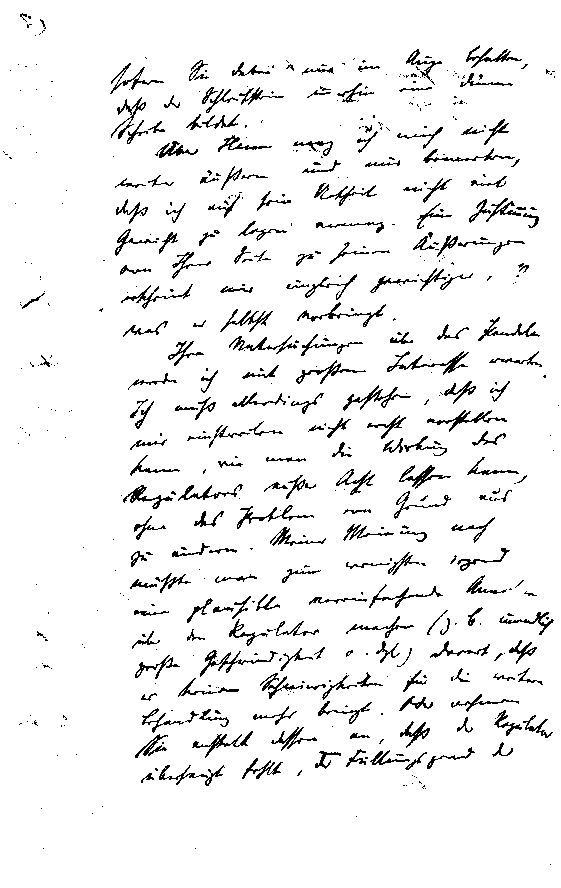 sofern Sie dabei nur im Auge behalten,
daß der Schleifstein immerhin eine dünne
Scheibe bildet.
Über Herrn mag ich mich nicht
weiter äußern und nur bemerken,
daß ich auf sein Urtheil nicht viel
Gewicht zu legen vermag. Eine Zustimmung
von Ihrer Seite zu seinen Äußerungen
erscheint mir ungleich gewichtiger,
was er selbst vorbringt.
Ihre Untersuchungen über das Pendeln
werde ich mit großem Interesse erwarten.
Ich muß allerdings gestehen, daß ich
mir einstweilen nicht recht vorstellen
kann, wie man die Wirkung des
Regulators außer Acht lassen kann,
ohne das Problem von Grund aus
zu ändern. Meiner Meinung nach
müßte man zum wenigsten irgend
eine plausible vereinfachende
über den Regulator machen (z. B. unendlich
große Geschwindigkeit o. dgl.) derart, daß
er keine Schwierigkeiten für die weitere
Behandlung mehr bringt. Oder nehmen
Sie anstatt dessen an, daß der Regulator
überhaupt fehlt, der Füllungsgrad der